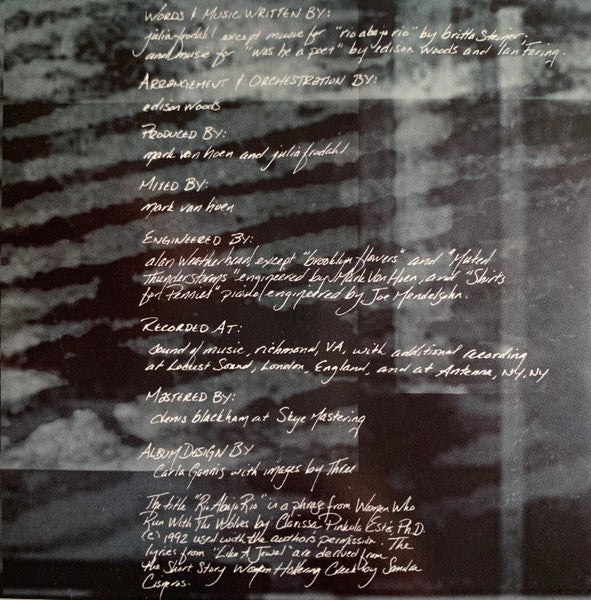 Words & Music Written By:
julia frodahl except music for "rio abajo rio" by britta Steiner.
and music for "was he a poet" by edison woods and Ian Faring.
Arrangement & Orchestration By:
edison woods
Produced By:
mark van hoen and julia frodahl
Mixed By:
mark van hoen
Engineered By:
alan Weatherhead except "brooklyn flowers" and "Muted
Thunderstorms" engineered by Mark Van Hoen, and "Shirts
for Pennies" piano engineered by Joe Mendelsohn.
Recorded At:
sound of music, richmond, VA, with additional recording
at Locust Sound, London, England, and at Antenna, NY, NY
Mastered By:
denis blackham at Skye Mastering
Album Design By
Carla Gannis with images by Three
The title "Rio Abajo Rio" is a phrase from Women Who
Run With The Wolves by Clarissa Pinkola Estés, Ph.D.
(c) 1992 used with the author's permission. The
lyrics from "Like A Jewel" are derived from
the Short Story Woman Hollering Creek by Sandra
Cisneros.